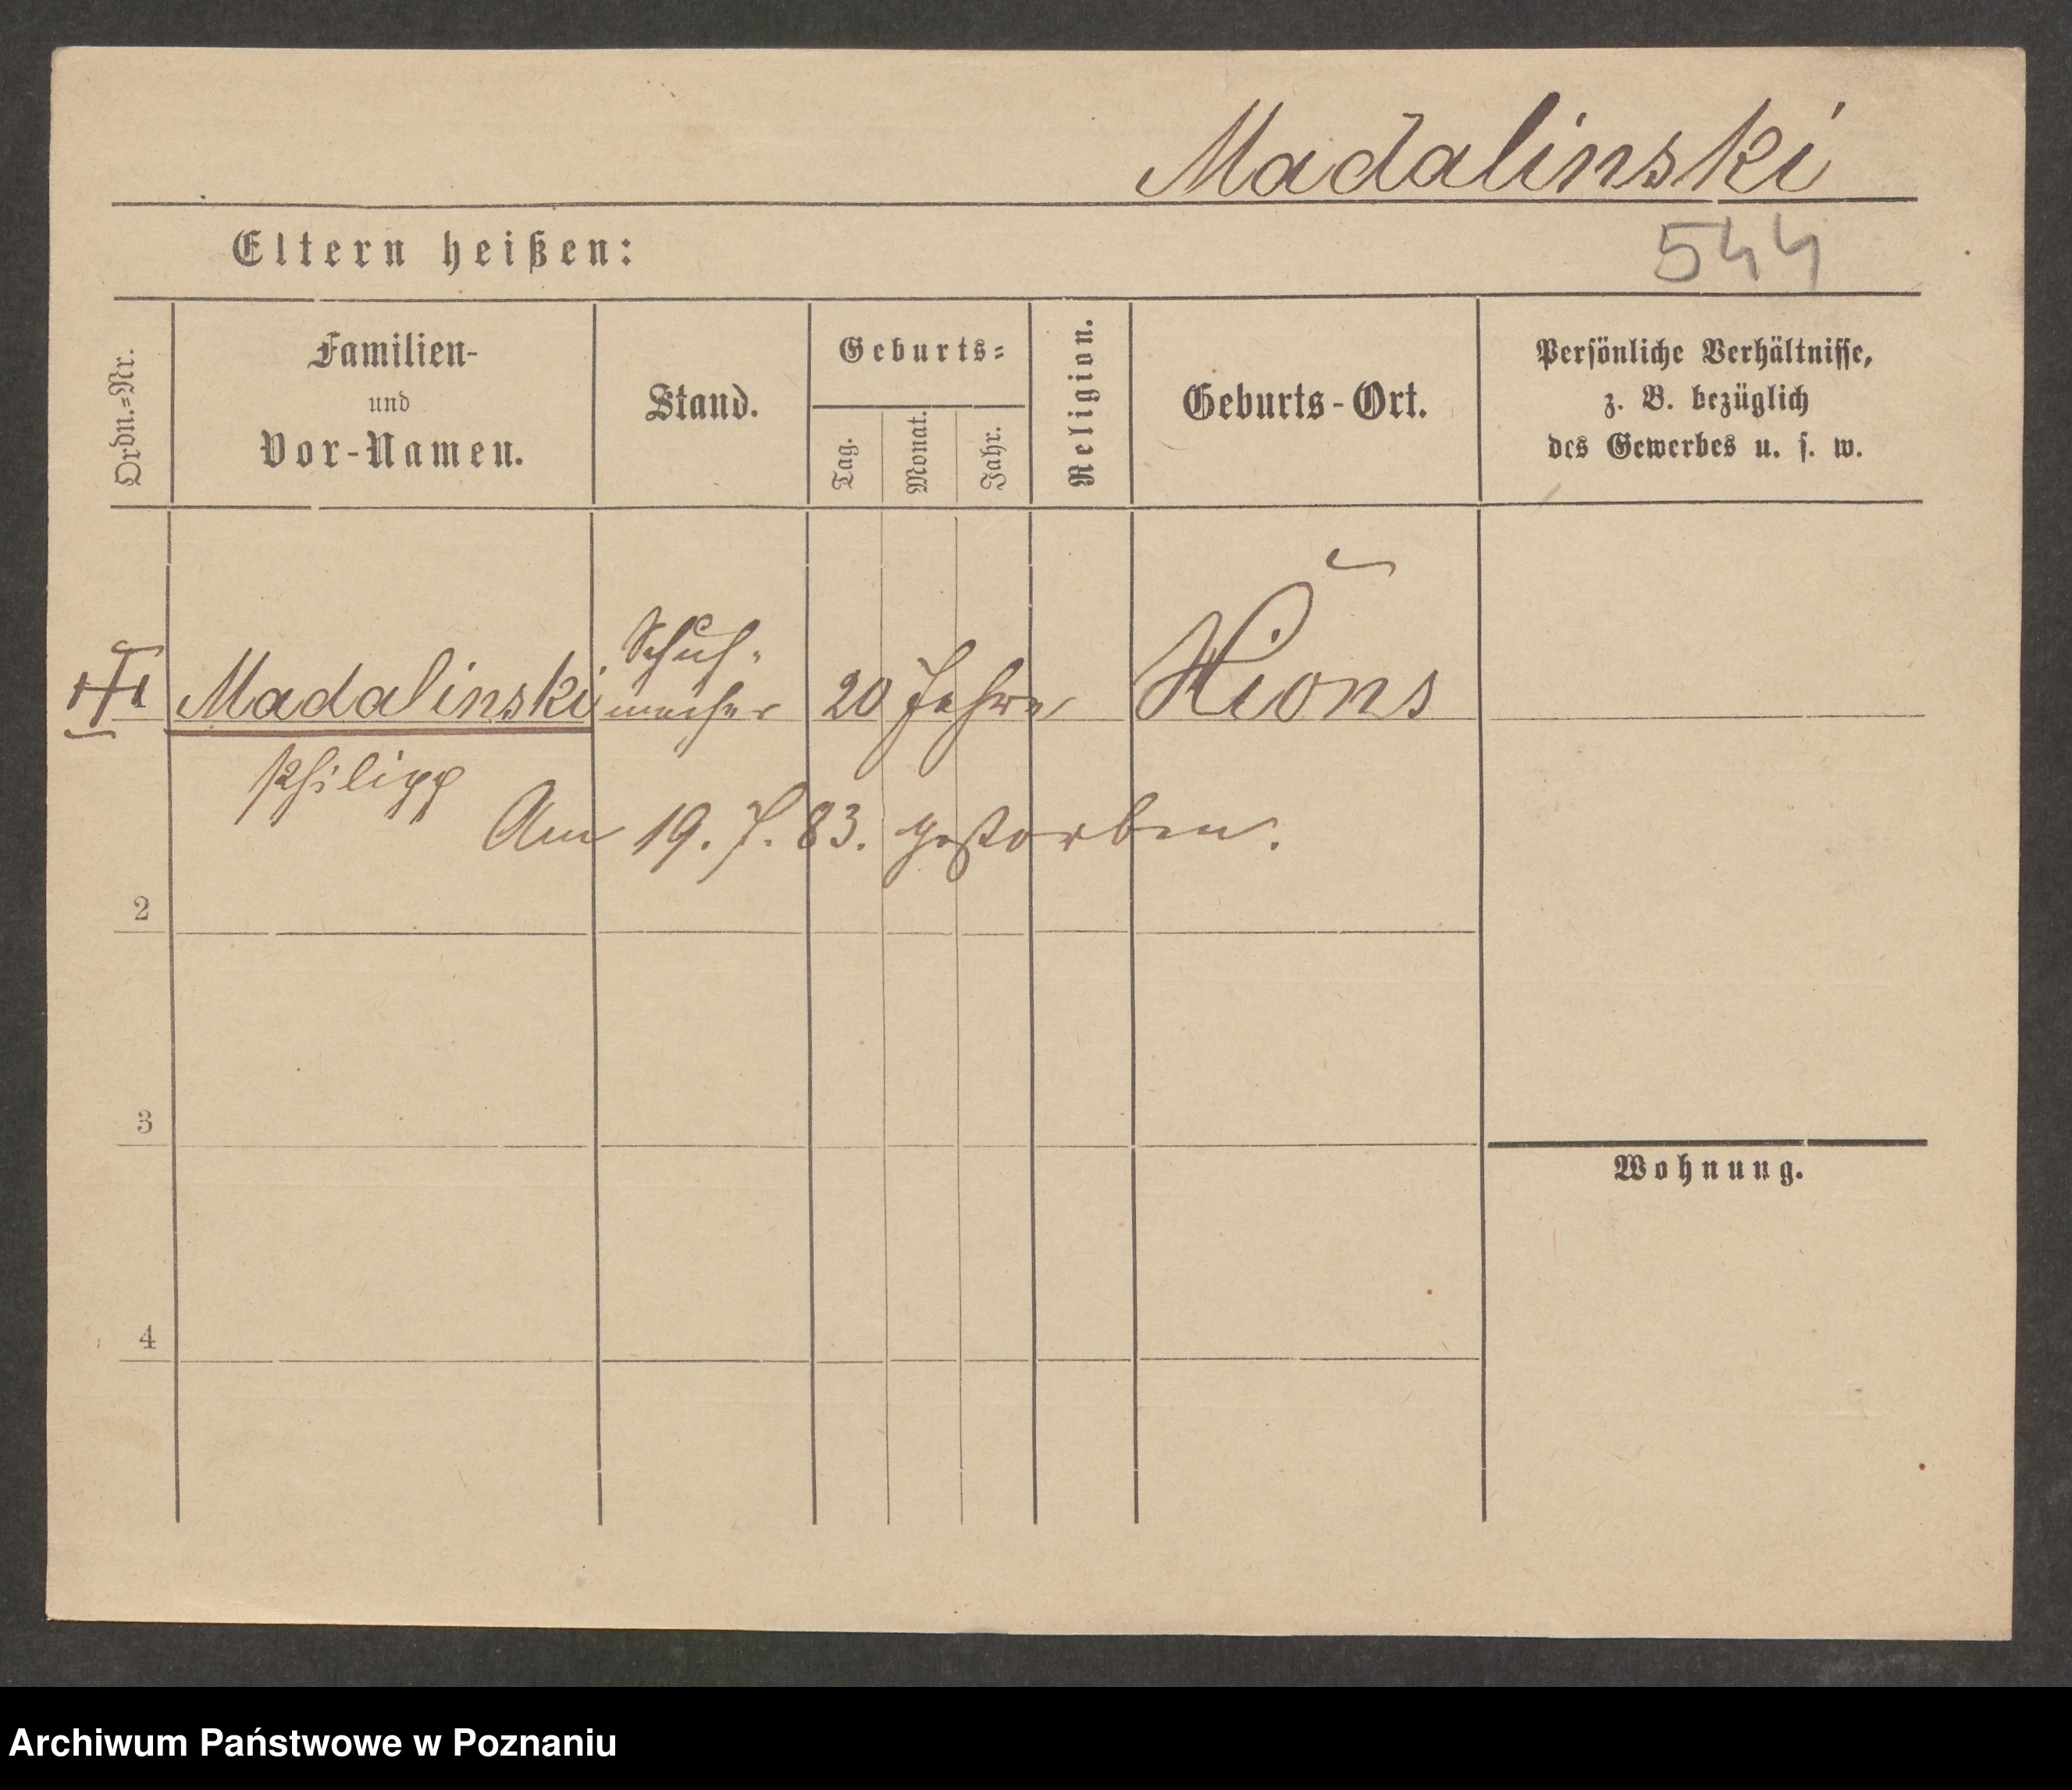 Madalinski
Eltern heißen:
544
Ordn.=Nr.
Familien-
und
Vor-Namen.
Stand.
Geburts=
Tag.
Monat.
Jahr.
Religion.
Geburts-Ort.
Persönliche Verhältnisse,
z. B. bezüglich
des Gewerbes u. s. w.
1 Madalinski Schuh-
macher 20 Jahre Xions
Philipp
Am 19. 7. 83. gestorben.
2
3
Wohnung.
4
Archiwum Państwowe w Poznaniu